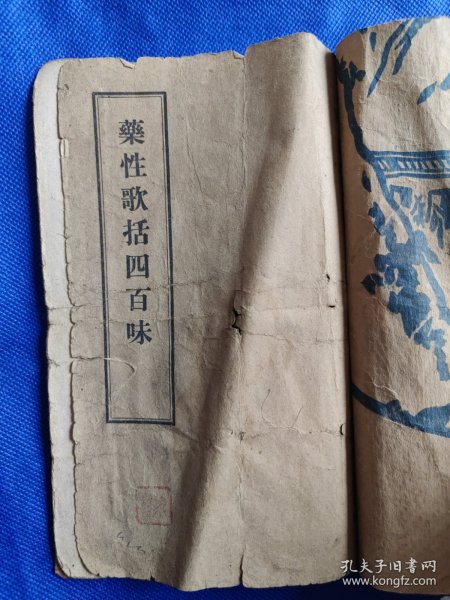 藥性歌括四百味
孔夫子旧书网
www.kongfz.com